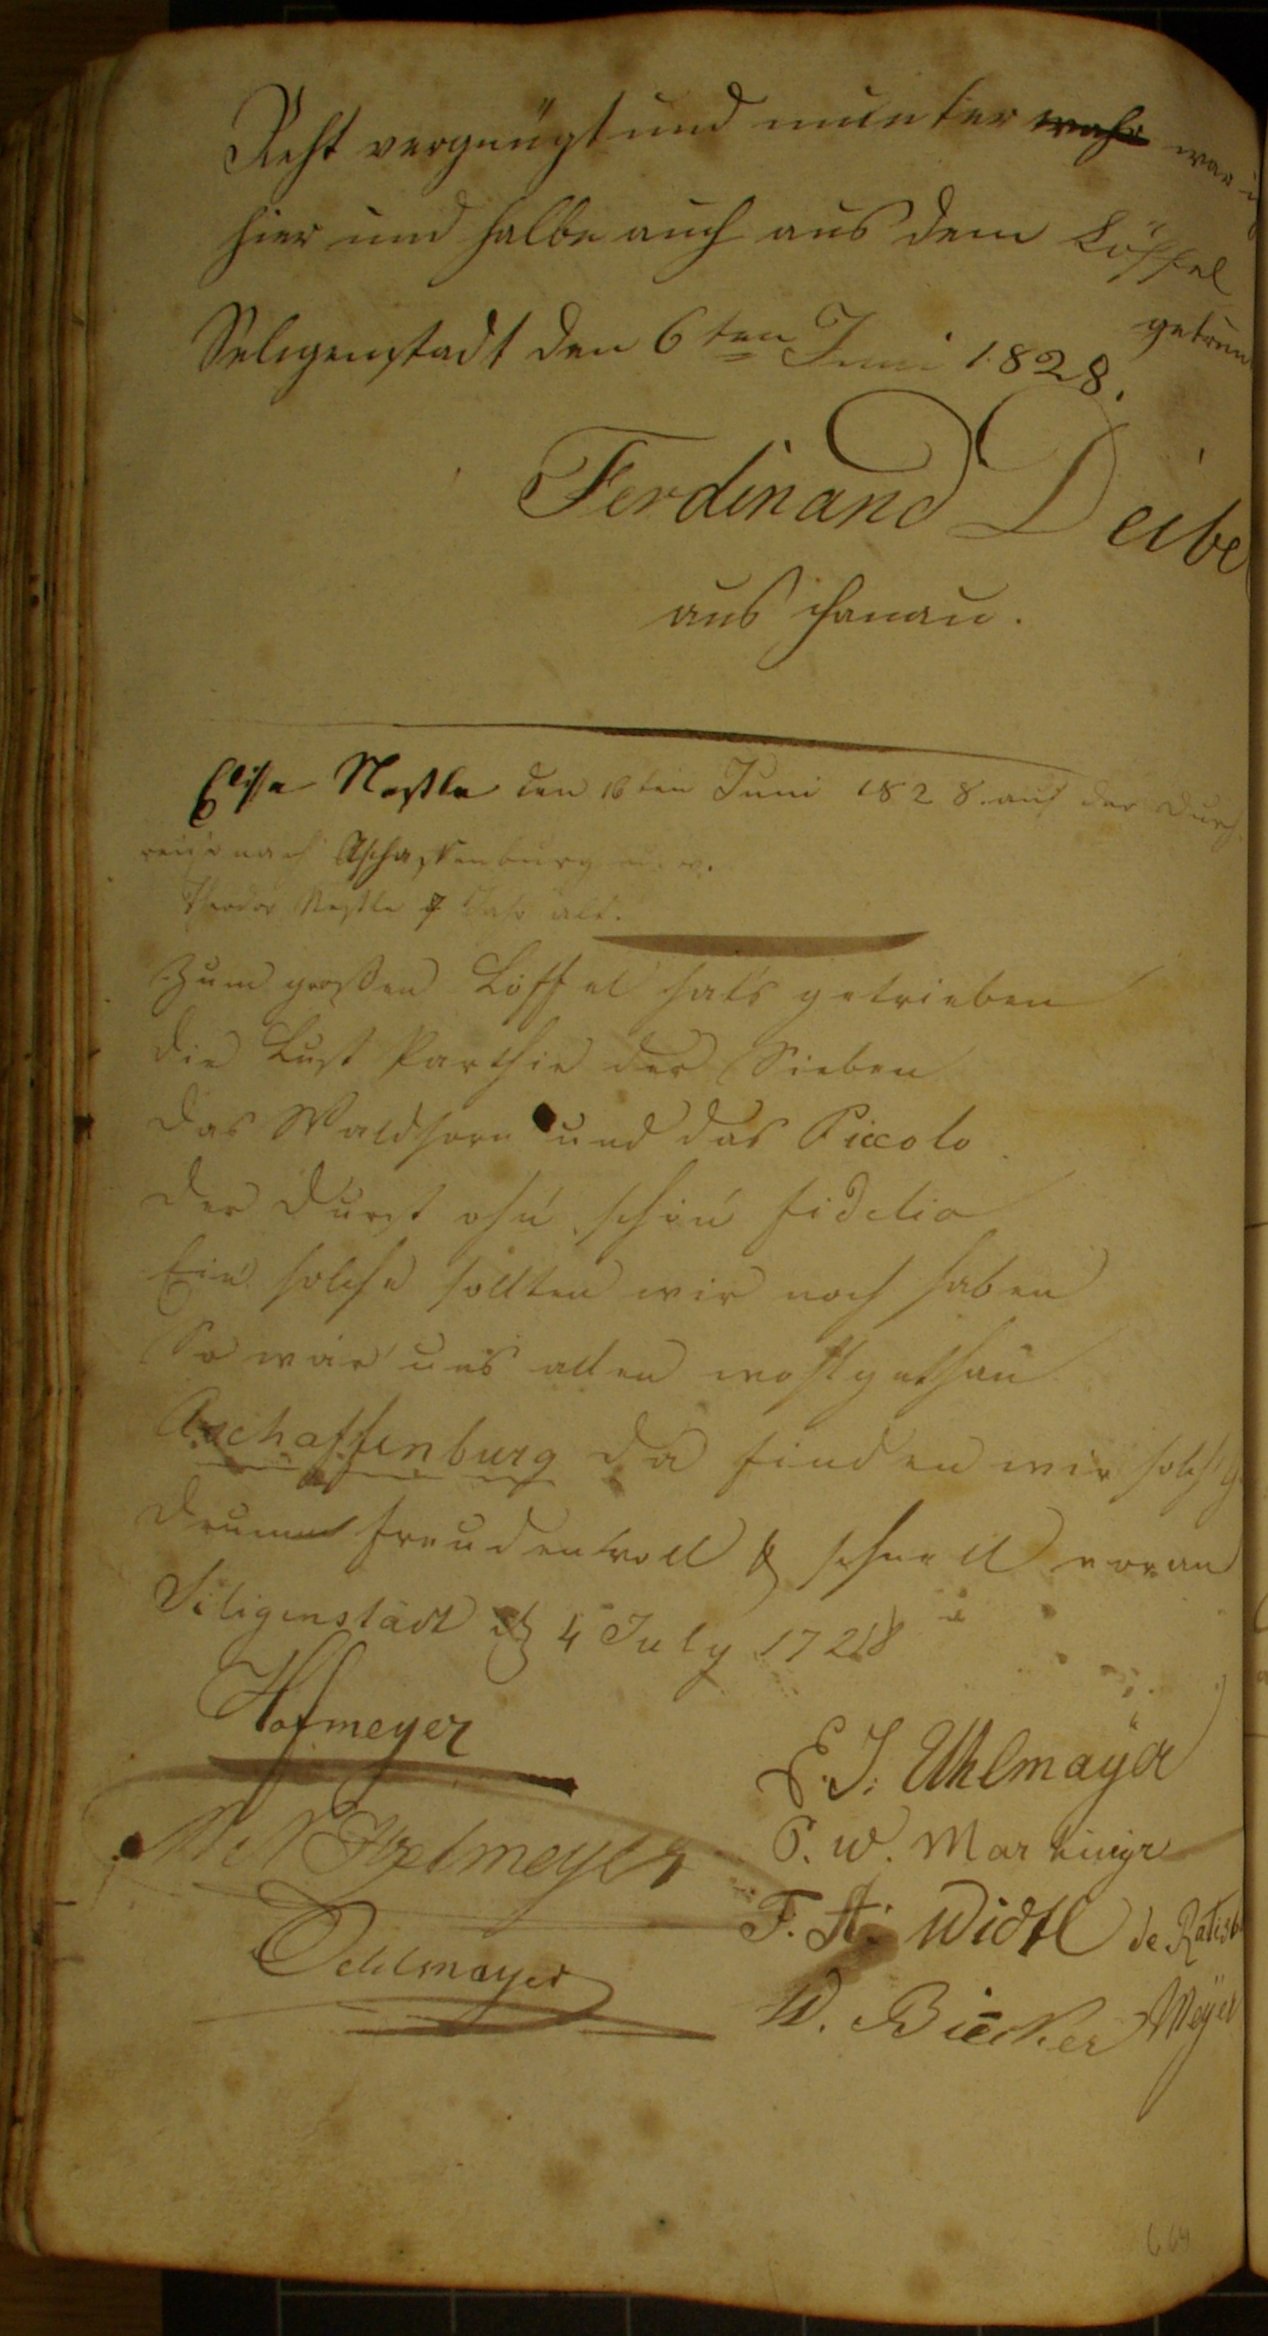 Recht vergnügt und munter wahr war i
hier und halbe auch aus dem Löffel
getrun
Seligenstadt den 6ten Juni 1828.
Ferdinand Deibe
aus Hanau.
Elise Nestle den 16ten Juni 1828. auf der Durch
reise nach Aschaffenburg u. w.
Theodor Nestle 7 Jahr alt.
Zum großen Löffel hat's getrieben
die Lust Parthie der Sieben
das Waldhorn und das Piccolo
der Durst ohn' schön' fidelio
Ein' solche sollten wir noch haben
So wär' uns allen wohlgethan
Aschaffenburg da finden wir solch
Drum freudenvoll & schnell voran
Seligenstadt d 4 July 1728
Hofmeyer
E. J. Uhlmayer
P. W. Mar
F. A. Widtl de Ratisb
W. Biecker Meyer